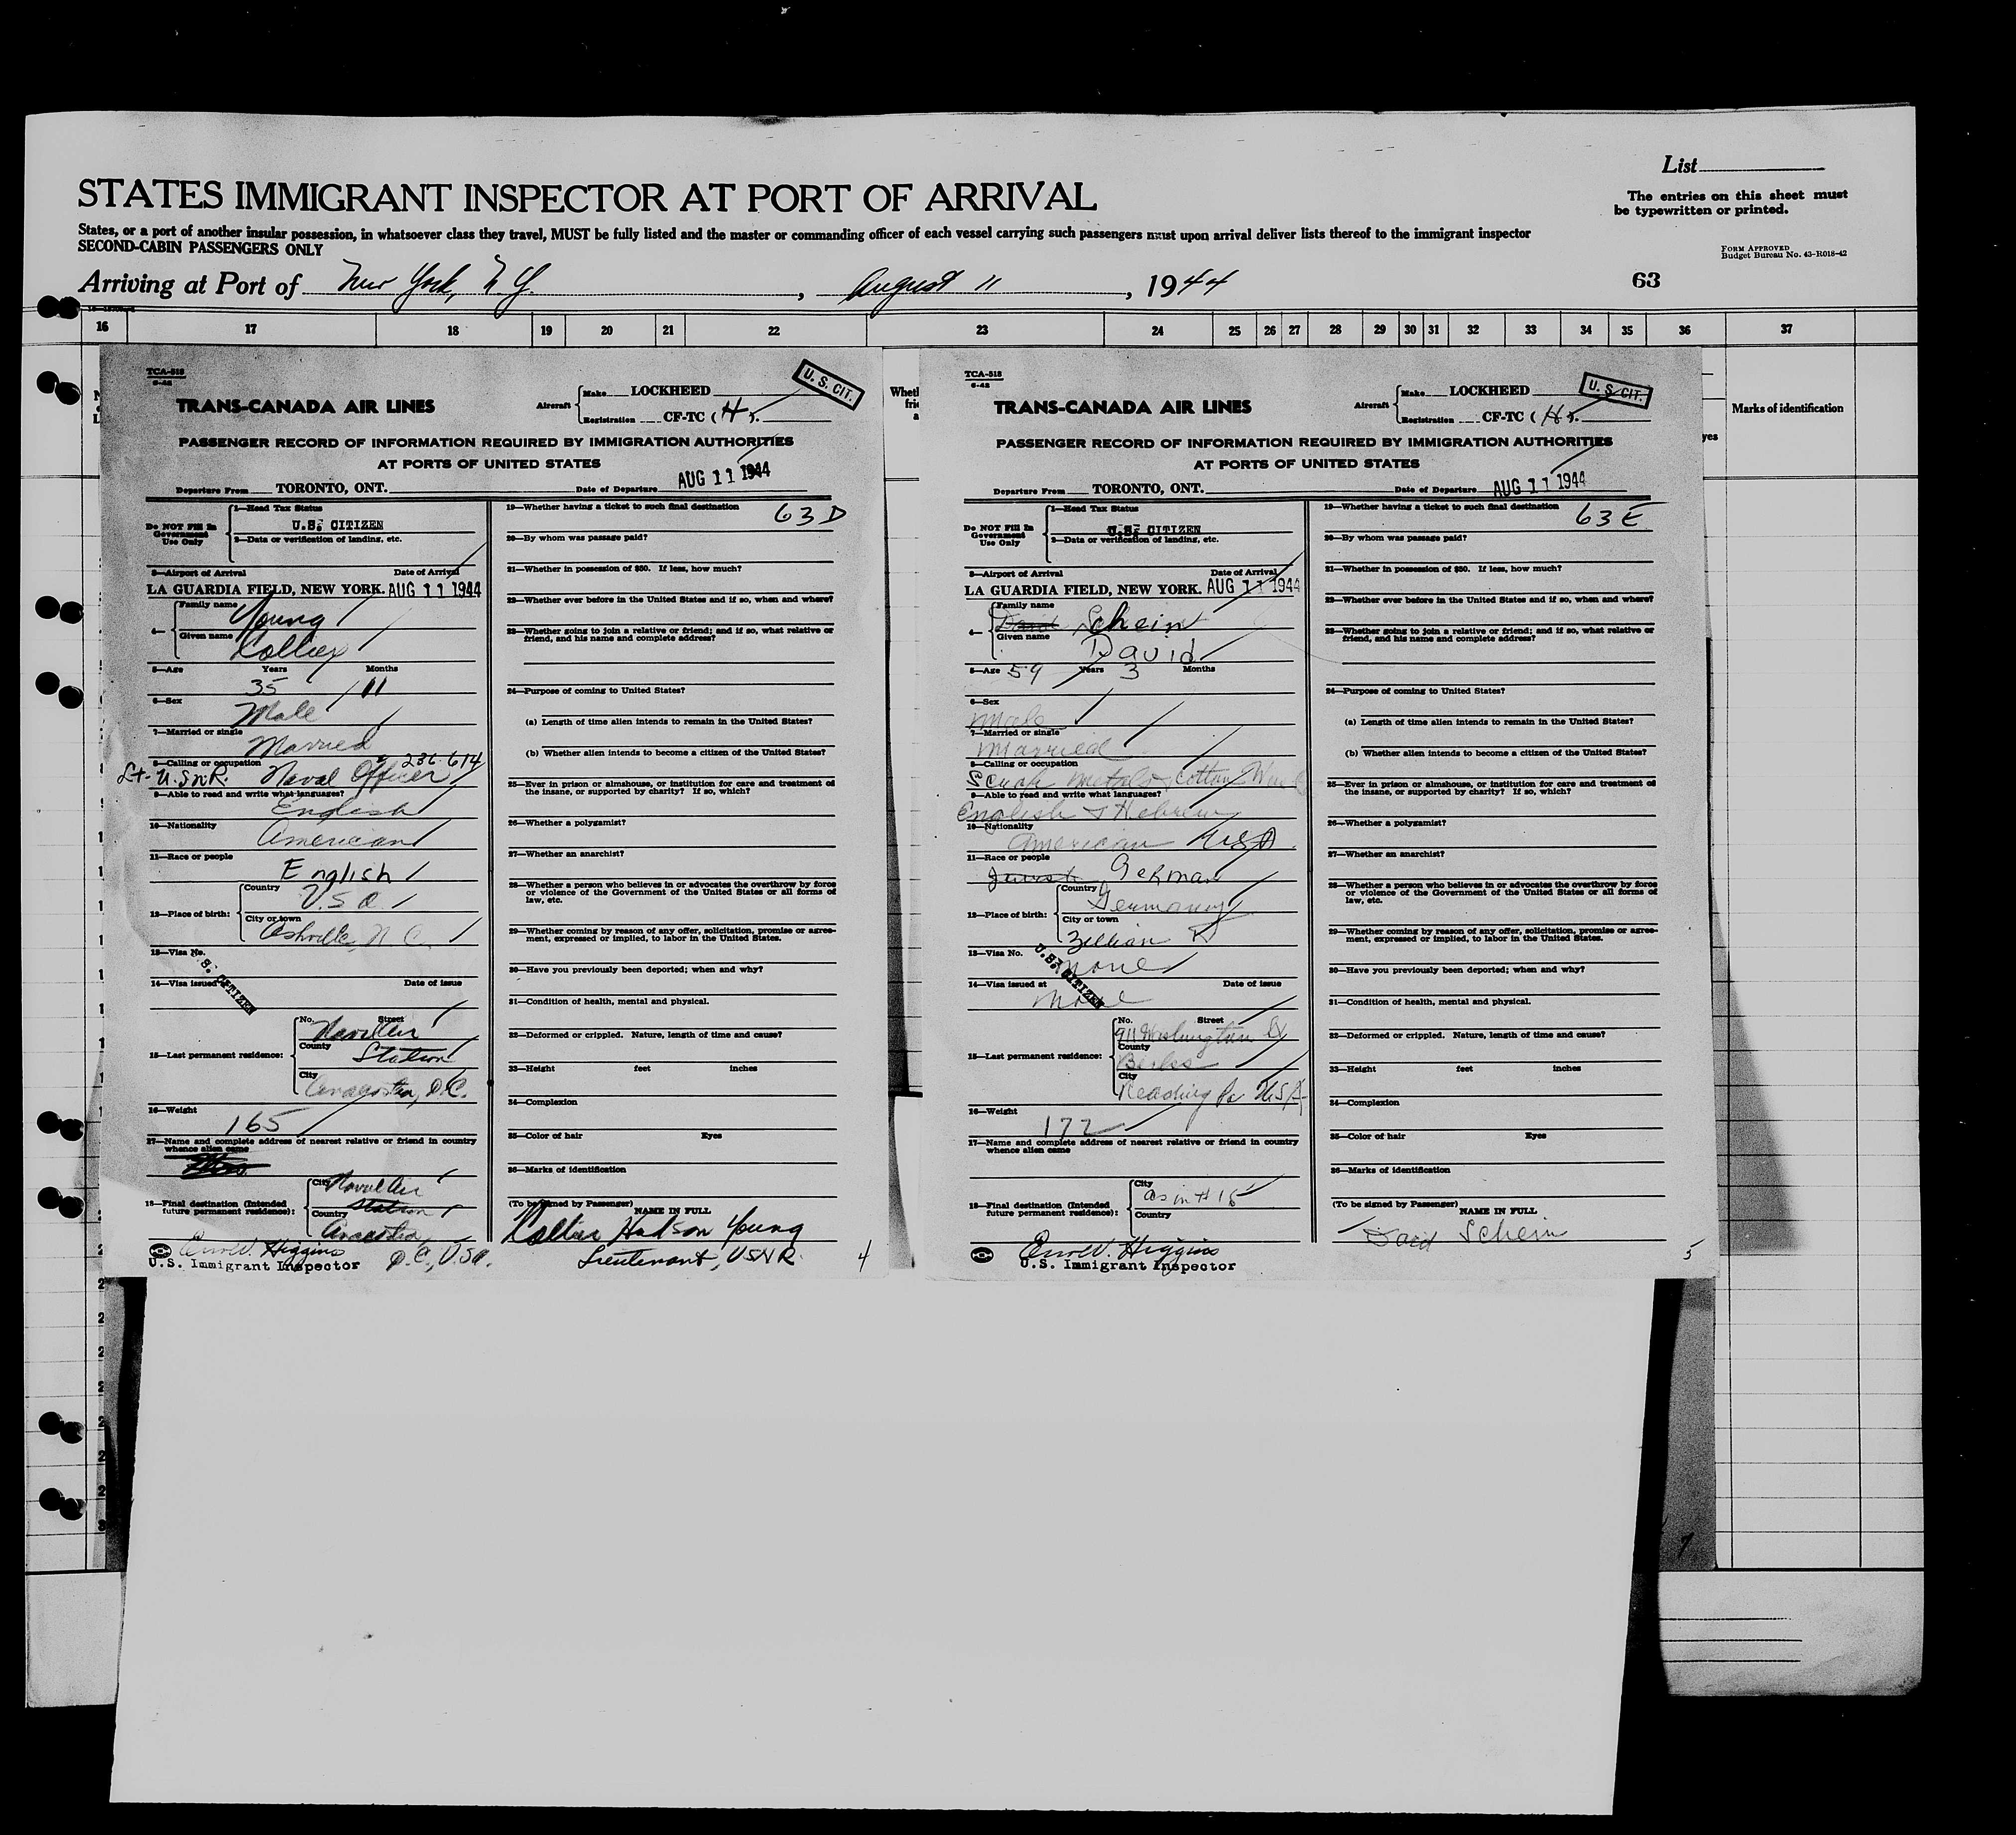 List
STATES IMMIGRANT INSPECTOR AT PORT OF ARRIVAL
The entries on this sheet must
be typewritten or printed.
States, or a port of another insular possession, in whatsoever class they travel, MUST be fully listed and the master or commanding officer of each vessel carrying such passengers must upon arrival deliver lists thereof to the immigrant inspector
SECOND-CABIN PASSENGERS ONLY
FORM APPROVED
Budget Bureau No. 43-R018-42
Arriving at Port of New York, N.Y., August 11, 1944
63
16 17 18 19 20 21 22 23 24 25 26 27 28 29 30 31 32 33 34 35 36 37
Marks of identification
TCA-518
6-42
TRANS-CANADA AIR LINES
Aircraft Make LOCKHEED
Registration CF-TC (H).
U. S. CIT.
PASSENGER RECORD OF INFORMATION REQUIRED BY IMMIGRATION AUTHORITIES
AT PORTS OF UNITED STATES
Departure From TORONTO, ONT. Date of Departure AUG 11 1944
Do NOT Fill In
Government
Use Only
1—Head Tax Status
U.S. CITIZEN
2—Data or verification of landing, etc.
3—Airport of Arrival Date of Arrival
LA GUARDIA FIELD, NEW YORK. AUG 11 1944
4— Family name Young
Given name Collier
5—Age Years Months
35 11
6—Sex
Male
7—Married or single
Married
8—Calling or occupation 236-614
Lt. U.S.N.R. Naval Officer
9—Able to read and write what languages?
English
10—Nationality
American
11—Race or people
English
12—Place of birth: Country
U.S.A.
City or town
Ashville, N.C.
13—Visa No.
U.S. CITIZEN
14—Visa issued Date of issue
15—Last permanent residence: No. Street
Naval Air
County
Station
City
Anacostia, D.C.
16—Weight
165
17—Name and complete address of nearest relative or friend in country
whence alien came
18—Final destination (Intended
future permanent residence):
City Naval Air
Station
Country
Anacostia,
D.C., U.S.A.
Errol V. Higgins
U.S. Immigrant Inspector
19—Whether having a ticket to such final destination
63 D
20—By whom was passage paid?
21—Whether in possession of $50. If less, how much?
22—Whether ever before in the United States and if so, when and where?
23—Whether going to join a relative or friend; and if so, what relative or
friend, and his name and complete address?
24—Purpose of coming to United States?
(a) Length of time alien intends to remain in the United States?
(b) Whether alien intends to become a citizen of the United States?
25—Ever in prison or almshouse, or institution for care and treatment of
the insane, or supported by charity? If so, which?
26—Whether a polygamist?
27—Whether an anarchist?
28—Whether a person who believes in or advocates the overthrow by force
or violence of the Government of the United States or all forms of
law, etc.
29—Whether coming by reason of any offer, solicitation, promise or agree-
ment, expressed or implied, to labor in the United States.
30—Have you previously been deported; when and why?
31—Condition of health, mental and physical.
32—Deformed or crippled. Nature, length of time and cause?
33—Height feet inches
34—Complexion
35—Color of hair Eyes
36—Marks of identification
(To be signed by Passenger)
NAME IN FULL
Collier Hudson Young
Lieutenant, USNR.
4
TCA-518
6-42
TRANS-CANADA AIR LINES
Aircraft Make LOCKHEED
Registration CF-TC (H).
U. S. CIT.
PASSENGER RECORD OF INFORMATION REQUIRED BY IMMIGRATION AUTHORITIES
AT PORTS OF UNITED STATES
Departure From TORONTO, ONT. Date of Departure AUG 11 1944
Do NOT Fill In
Government
Use Only
1—Head Tax Status
U.S. CITIZEN
2—Data or verification of landing, etc.
3—Airport of Arrival Date of Arrival
LA GUARDIA FIELD, NEW YORK. AUG 11 1944
4— Family name
David Schein
Given name
David
5—Age 59 Years 3 Months
6—Sex
Male
7—Married or single
Married
8—Calling or occupation
Scrap Metal & Cotton
9—Able to read and write what languages?
English & Hebrew
10—Nationality
American USA.
11—Race or people
Jewish German
12—Place of birth: Country
Germany
City or town
13—Visa No.
None
U.S. CITIZEN
14—Visa issued at Date of issue
None
15—Last permanent residence: No. Street
911 Washington St
County
Berks
City
Reading Pa USA
16—Weight
172
17—Name and complete address of nearest relative or friend in country
whence alien came
18—Final destination (Intended
future permanent residence):
City
as in # 15
Country
Errol V. Higgins
U.S. Immigrant Inspector
19—Whether having a ticket to such final destination
63 E
20—By whom was passage paid?
21—Whether in possession of $50. If less, how much?
22—Whether ever before in the United States and if so, when and where?
23—Whether going to join a relative or friend; and if so, what relative or
friend, and his name and complete address?
24—Purpose of coming to United States?
(a) Length of time alien intends to remain in the United States?
(b) Whether alien intends to become a citizen of the United States?
25—Ever in prison or almshouse, or institution for care and treatment of
the insane, or supported by charity? If so, which?
26—Whether a polygamist?
27—Whether an anarchist?
28—Whether a person who believes in or advocates the overthrow by force
or violence of the Government of the United States or all forms of
law, etc.
29—Whether coming by reason of any offer, solicitation, promise or agree-
ment, expressed or implied, to labor in the United States.
30—Have you previously been deported; when and why?
31—Condition of health, mental and physical.
32—Deformed or crippled. Nature, length of time and cause?
33—Height feet inches
34—Complexion
35—Color of hair Eyes
36—Marks of identification
(To be signed by Passenger)
NAME IN FULL
David Schein
5